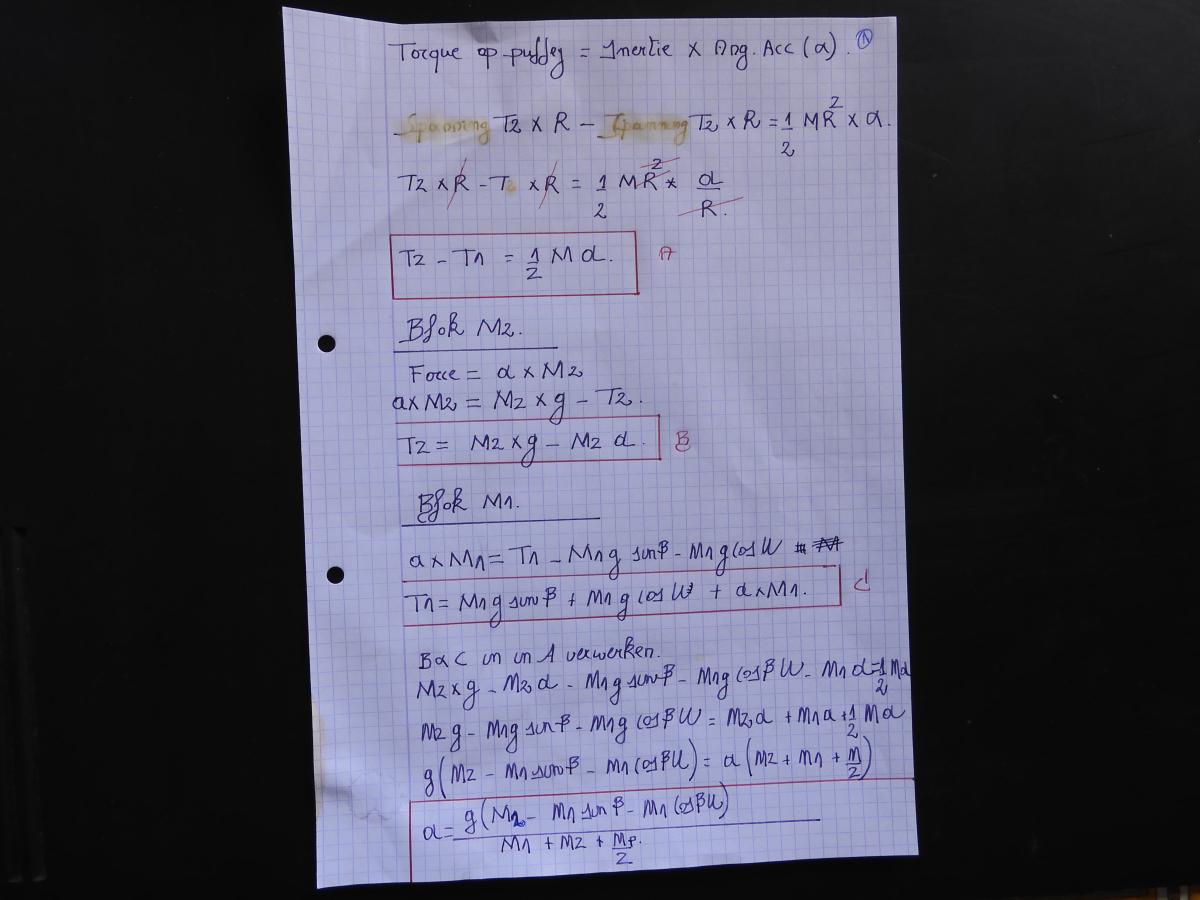 Torque op pulley = Inertie x Ang. Acc (α). 1
Spanning T2 x R - Spanning T2 x R = 1/2 MR² x α.
T2 x R - T x R = 1/2 MR² x a/R.
T2 - T1 = 1/2 M a. A
Blok M2.
Force = a x M2
a x M2 = M2 x g - T2.
T2 = M2 x g - M2 a. B
Blok M1.
a x M1 = T1 - M1 g sin β - M1 g cos U
T1 = M1 g sin β + M1 g cos U + a x M1. C
B & C in in A verwerken.
M2 x g - M2 a - M1 g sin β - M1 g cos β U - M1 a = 1/2 Ma
M2 g - M1 g sin β - M1 g cos β U = M2 a + M1 a + 1/2 M a
g (M2 - M1 sin β - M1 cos β U) = a (M2 + M1 + M/2)
a = g (M2 - M1 sin β - M1 cos β U) / M1 + M2 + Mp/2.